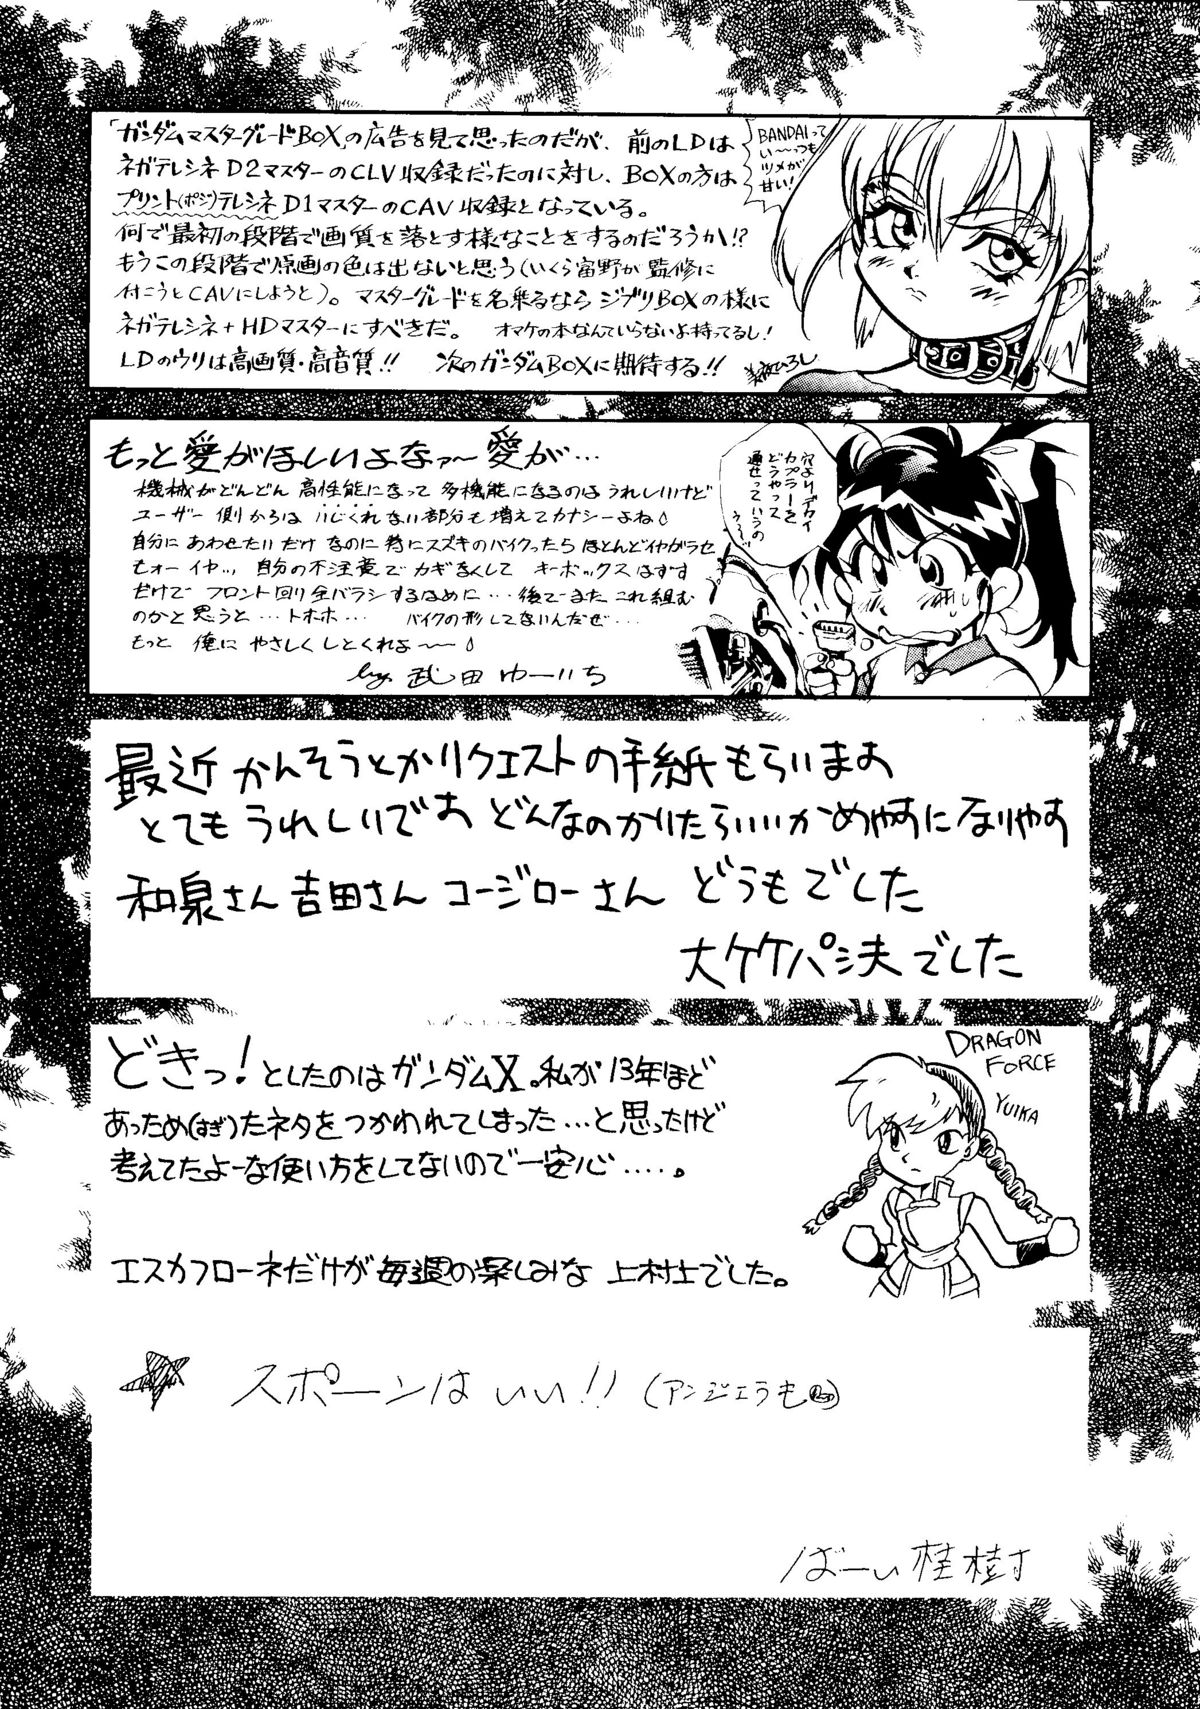 「ガンダムマスターグレードBOX」の広告を見て思ったのだが、前のLDは
ネガテレシネD2マスターのCLV収録だったのに対し、BOXの方は
プリント(ポジ)テレシネD1マスターのCAV収録となっている。
何で最初の段階で画質を落とす様なことをするのだろうか!?
もうこの段階で原画の色は出ないと思う(いくら富野が監修に
付こうとCAVにしようと)。マスターグレードを名乗るならジブリBOXの様に
ネガテレシネ+HDマスターにすべきだ。 オマケの本なんていらないよ持ってるし!
LDのウリは高画質・高音質!! 次のガンダムBOXに期待する!!
BANDAIって
い〜っつも
ツメが
甘い!
もっと愛がほしいよなァ〜愛が…
機械がどんどん高性能になって多機能になるのはうれしいけど
ユーザー側からはいじくれない部分も増えてカナシーよね
自分にあわせたいだけなのに特にスズキのバイクったらほとんどイヤがラセ
もォーイヤッ、自分の不注意でカギなくしてキーボックスはずす
だけでフロント回り全バラシするはめに…後でまたこれ組む
のかと思うと…トホホ… バイクの形してないんだぜ…
もっと俺にやさしくしとくれよ〜〜
by 武田ゆーいち
穴よりデカイ
カプラーを
どうやって
通せっていうの
う〜
最近かんそうとかリクエストの手紙もらいます
とてもうれしいです どんなのかいたらいいかめやすになりやす
和泉さん吉田さんコージローさん どうもでした
大ケケパシ夫でした
どきっ!としたのはガンダムX。私が13年ほど
あっため(すぎ)たネタをつかわれてしまった…と思ったけど
考えてたよーな使い方をしてないので一安心……。
エスカフローネだけが毎週の楽しみな 上村上でした。
DRAGON
FORCE
YUIKA
スポーンはいい!! (アンジェラも)
ばーぃ桂樹